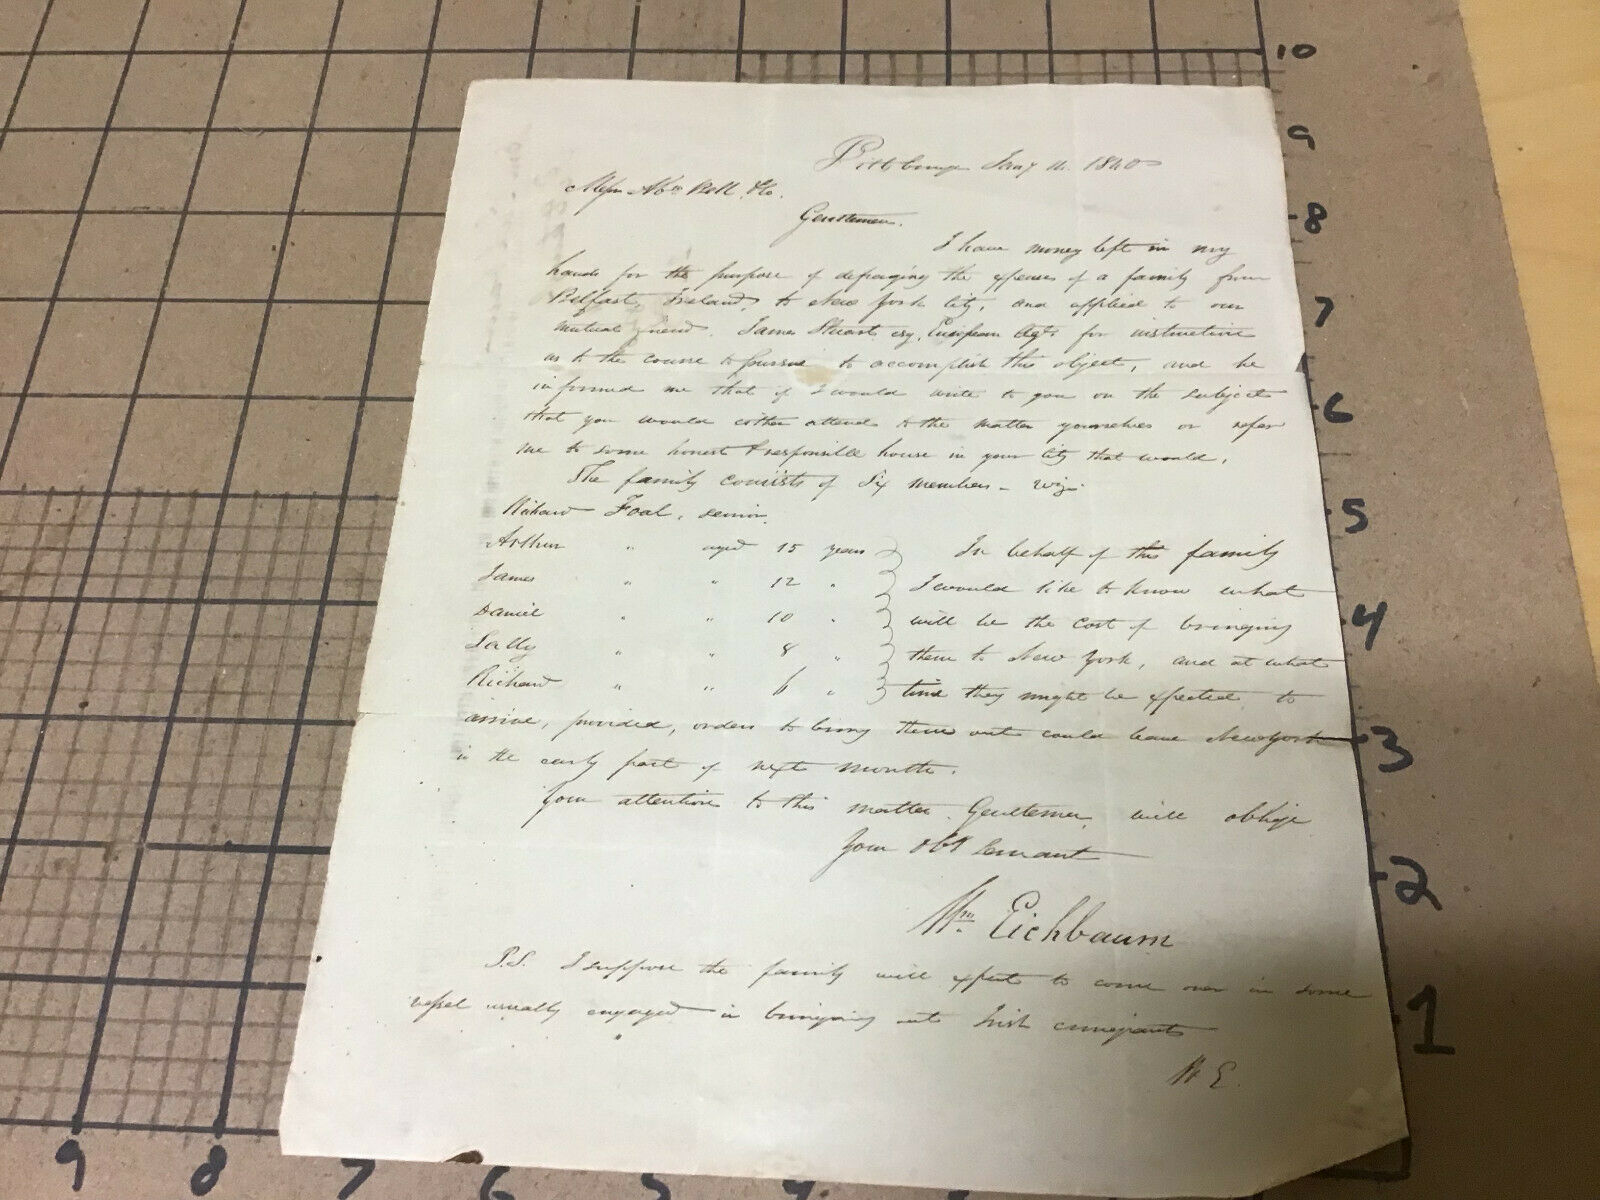 Pittsburgh Jany 1840
Messrs Abm Bell & Co.
Gentlemen.
I have money left in my
hands for the purpose of defraying the expenses of a family from
Belfast, Ireland, to New York City, and applied to our
mutual friend, James Stuart esq, European Agt for instruction
as to the course to pursue to accomplish this object, and he
informed me that if I would write to you on the subject
that you would either attend to the matter yourselves or refer
me to some honest & responsible house in your City that would.
The family consists of Six members - viz:
Richard Foal, senior.
Arthur " aged 15 years In behalf of this family
James " " 12 " I would like to know what
Daniel " " 10 " will be the cost of bringing
Sally " " 8 " them to New York, and at what
Richard " " 6 " time they might be expected to
arrive, provided, orders to bring them out could leave New York
in the early part of next month.
Your attention to this matter, Gentlemen, will oblige
Your Obt Servant
Wm. Eichbaum
P.S. I suppose the family will expect to come over in some
vessel usually engaged in bringing out Irish emigrants
W E.
10
9
8
7
6
5
4
3
2
1
9 8 7 6 5 4